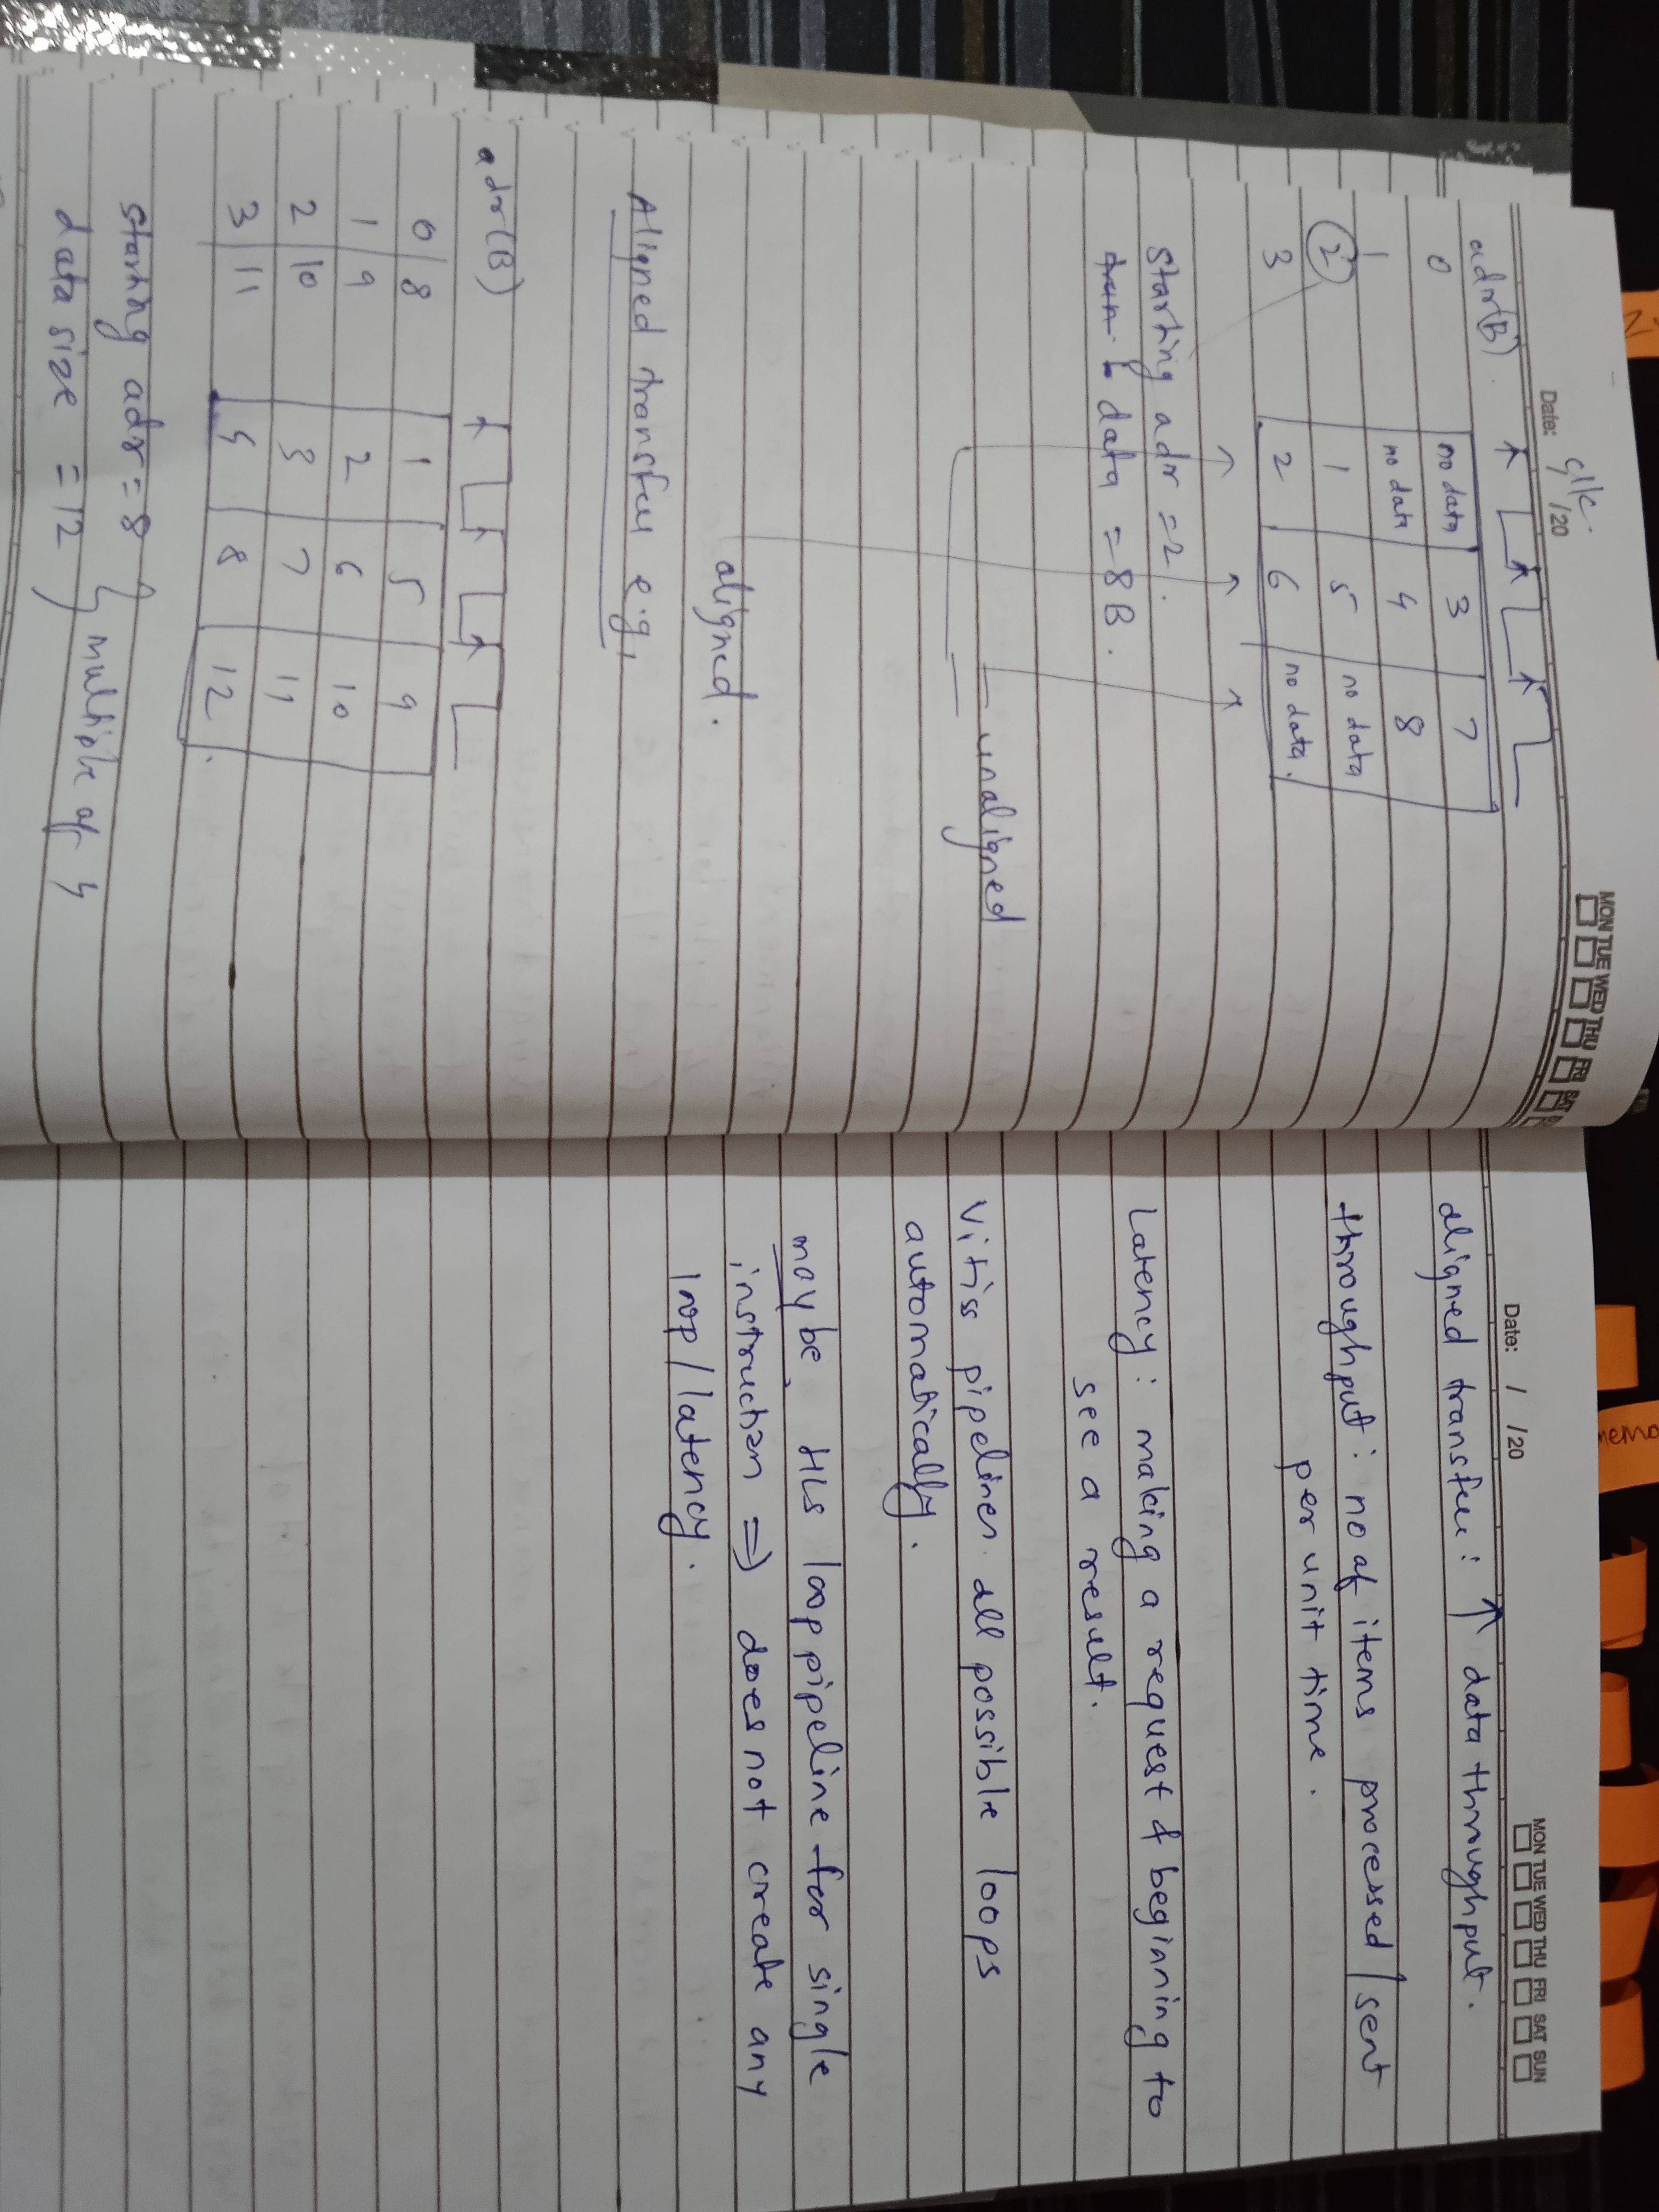 Date: /20
clk.
MON TUE WED THU FRI SAT
adr(B)
0 no data 3 7
1 no data 4 8
2 1 5 no data
3 2 6 no data.
starting adr = 2.
data = 8B.
unaligned
aligned.
Aligned transfer e.g,
adr(B)
0 8 1 5 9
1 9 2 6 10
2 10 3 7 11
3 11 4 8 12
starting adr = 8
data size = 12
multiple of 4
Date: / /20
MON TUE WED THU FRI SAT SUN
aligned transfer : ↑ data throughput.
throughput : no of items processed / sent
per unit time.
Latency : making a request & beginning to
see a result.
Vitiss pipelines all possible loops
automatically.
may be, HLS loop pipeline for single
instruction => does not create any
loop / latency.